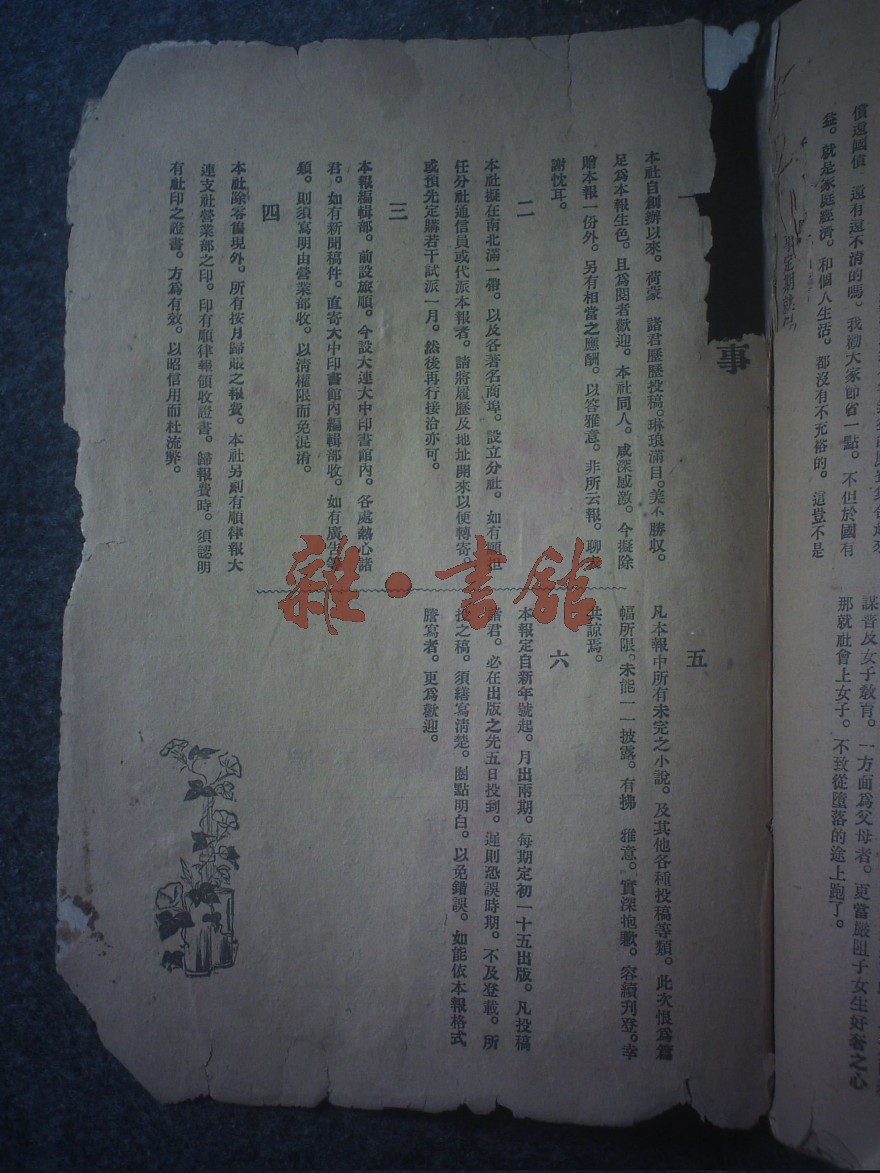 償還國債 還有還不清的嗎。我勸大家節省一點。不但於國有
益。就是家庭經濟。和個人生活。都沒有不充裕的。這豈不是
謀普及女子敎育。一方面爲父母者。更當嚴阻子女生好奢之心
那就社會上女子。不致從墮落的途上跑了。
事
一
本社自創辦以來。荷蒙 諸君歷歷投稿。琳琅滿目。美不勝収。
足爲本報生色。且爲閱者歡迎。本社同人。咸深感激。今擬除
贈本報一份外。另有相當之應酬。以答雅意。非所云報。聊表
謝忱耳。
二
本社擬在南北滿一帶。以及各著名商埠。設立分社。如有願担
任分社通信員或代派本報者。請將履歷及地址開來以便轉寄。
或預先定購若干試派一月。然後再行接洽亦可。
三
本報編輯部。前設旅順。今設大連大中印書館內。各處熱心諸
君。如有新聞稿件。直寄大中印書館內編輯部收。如有廣告等
類。則須寫明由營業部收。以清權限而免混淆。
四
本社除零售現外。所有按月歸賬之報費。本社另刻有順律報大
連支社營業部之印。印有順律報領收證書。歸報費時。須認明
有社印之證書。方爲有效。以昭信用而杜流弊。
五
凡本報中所有未完之小說。及其他各種投稿等類。此次恨爲篇
幅所限。未能一一披露。有拂 雅意。實深抱歉。容續刋登。幸
共諒焉。
六
本報定自新年號起。月出兩期。每期定初一十五出版。凡投稿
諸君。必在出版之先五日投到。遲則恐誤時期。不及登載。所
投之稿。須繕寫淸楚。圈點明白。以免錯誤。如能依本報格式
謄寫者。更爲歡迎。
雜·書館